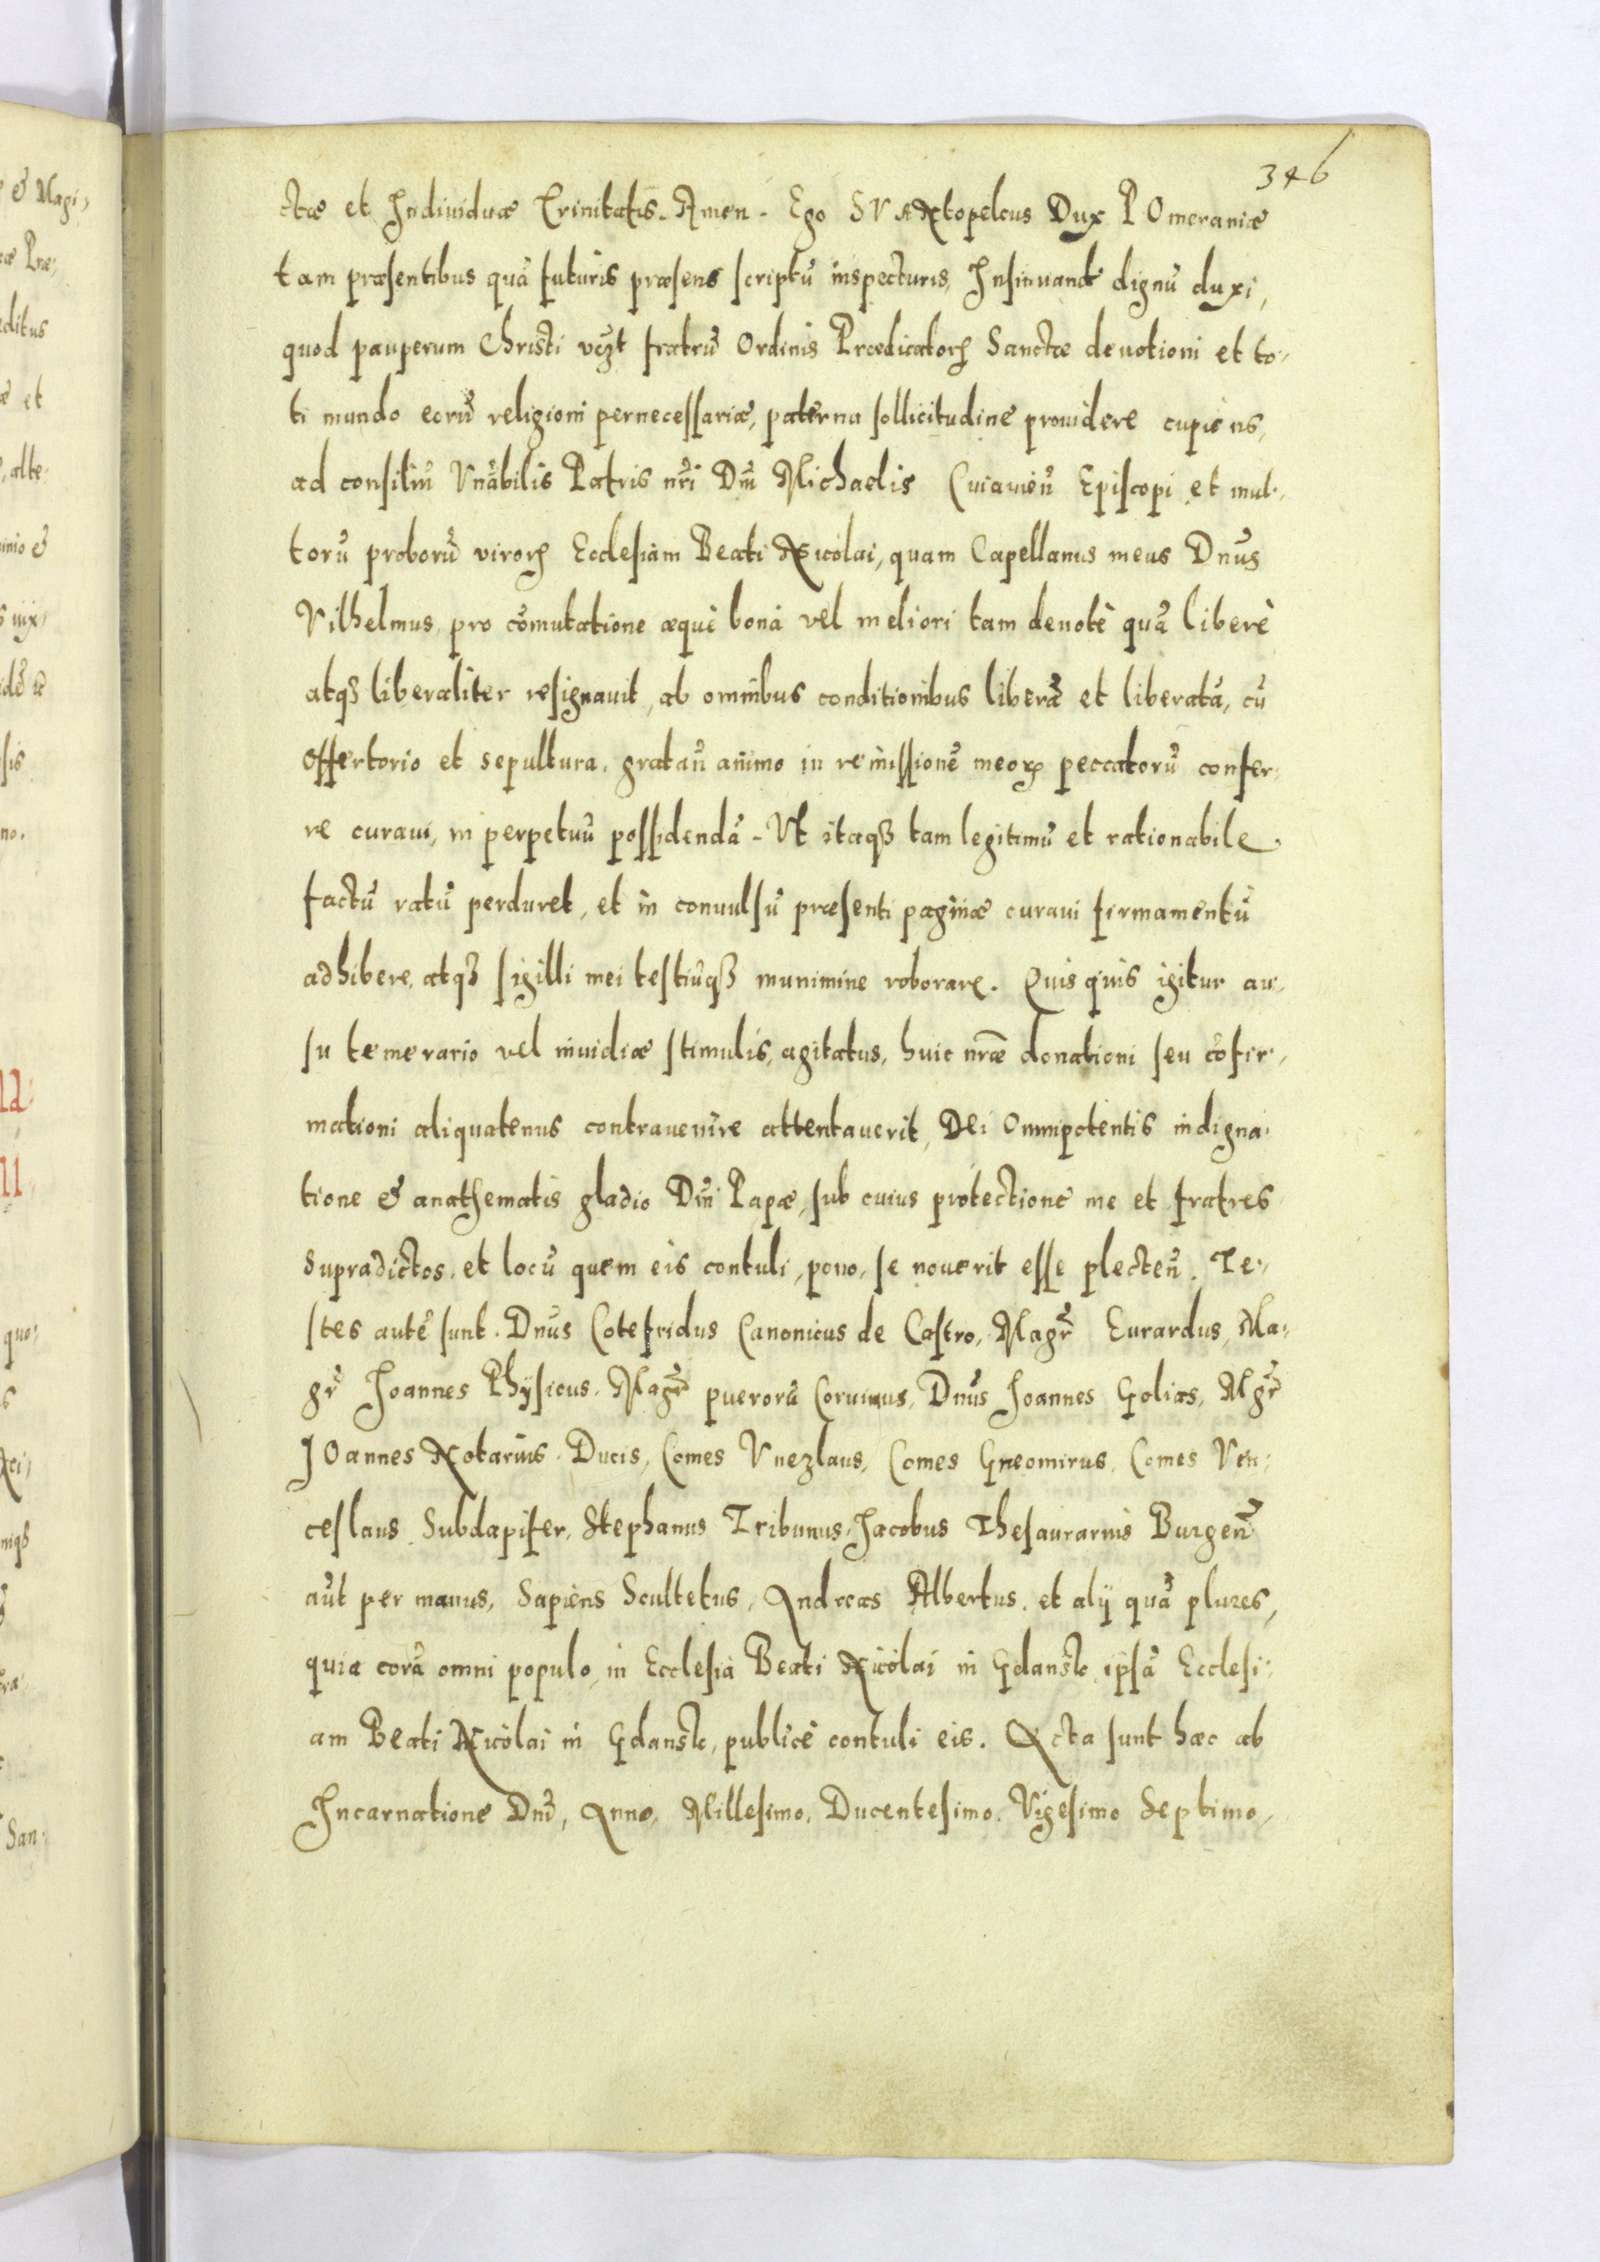 346
ctæ et Individuæ Trinitatis. Amen. Ego SVANtopelcus Dux POmeraniæ
tam præsentibus quā futuris præsens scriptū inspecturis, Insinuand dignū duxi,
quod pauperum Christi vczt fratrū Ordinis Prædicatorꝝ Sanctæ deuotioni et to-
ti mundo eorū religioni pernecessariæ, paterna sollicitudine prouidere cupiens,
ad consiliū Vnābilis Patris nr̄i Dn̄i Michaelis Cuiauien̄ Episcopi et mul-
torū proborū virorꝝ Ecclesiam Beati Nicolai, quam Capellanus meus Dnūs
Vilhelmus, pro cōmutatione æquè bona vel meliori tam deuotè quā liberè
atqȝ liberaliter resignauit, ab omnibus conditionibus liberā et liberatā, cū
offertorio et sepultura, gratan̄ animo in remissionē meorꝝ peccatorū confer-
re curaui, in perpetuū possidendā. Vt itaqȝ tam legitimū et rationabile
factū ratū perduret, et in conuulsū præsenti paginæ curaui firmamentū
adhibere, atqȝ sigilli mei testiūqȝ munimine roborare. Quisquis igitur au-
su temerario vel inuidiæ stimulis, agitatus, huic nr̄æ donationi seu cōfir-
mationi aliquatenus contrauenire attentauerit, Dei Omnipotentis indigna-
tione & anathematis gladio Dn̄i Papæ, sub cuius protectione me et fratres
supradictos, et locū quem eis contuli, pono, se nouerit esse plecten̄. Te-
stes autē sunt. Dnūs Cotefridus Canonicus de Castro, Magr̄ Eurardus, Ma-
gr̄ Joannes Physicus, Magr̄ puerorū Coruinus, Dnūs Joannes Golias, Mgr̄
JOannes Notarius Ducis, Comes Vnezlaus, Comes Gneomirus, Comes Ven-
ceslaus Subdapifer, Stephanus Tribunus, Jacobus Thesaurarius Burgen̄
aūt per manus, Sapiens Scultetus, Andreas Albertus, et alij quā plures,
quia corā omni populo, in Ecclesia Beati Nicolai in Gdansk ipsā Ecclesi-
am Beati Nicolai in Gdansk, publicè contuli eis. Acta sunt hæc ab
Incarnatione Dn̄i, Anno, Millesimo, Ducentesimo, Vigesimo Septimo,